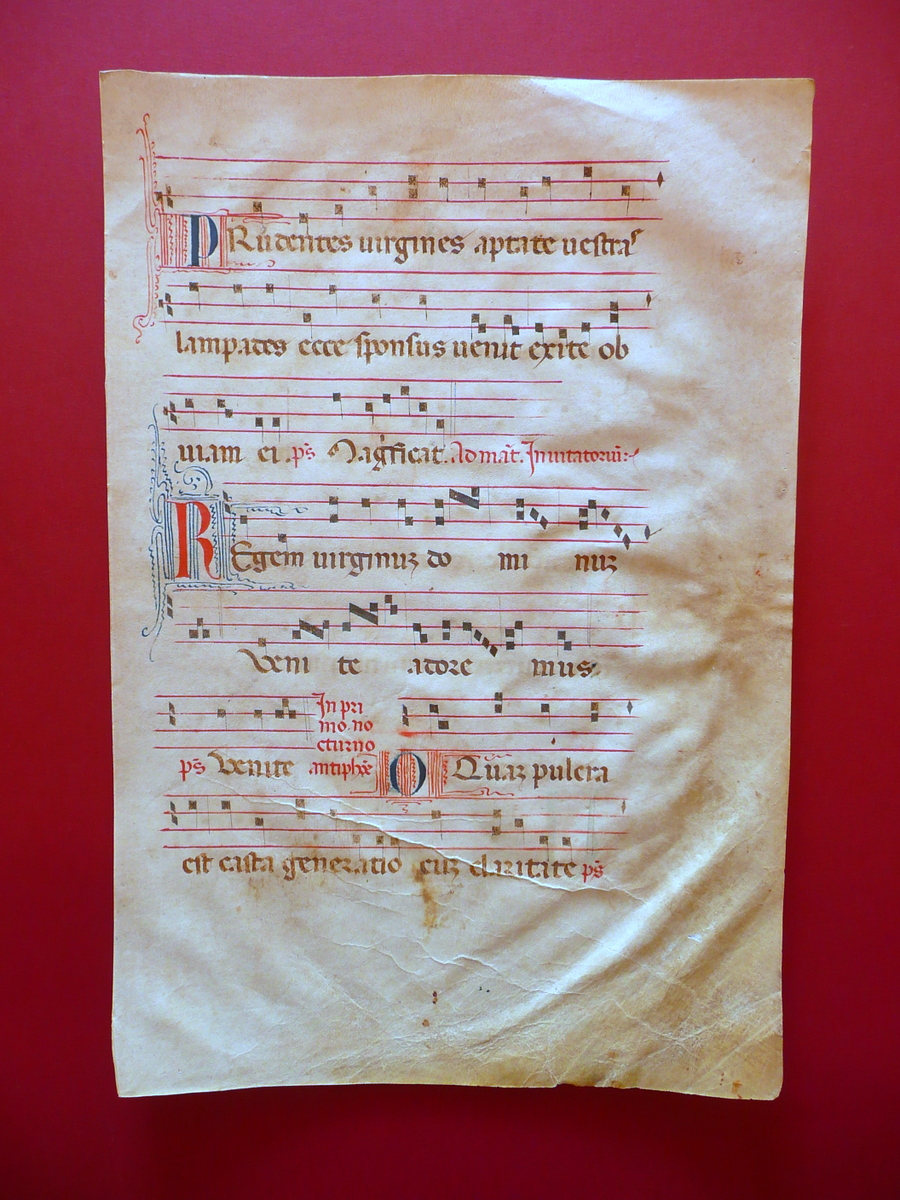 PRudentes uirgines aptate uestras
lampates ecce sponsus uenit exite ob
uiam ei ps Magficat. Ad mat. Inuitatoriu:
REgem uirginuz do mi nuz
Veni te adore mus:
ps Venite In pri mo no cturno antiphõe O Quaz pulcra
est casta generatio cuz claritate ps